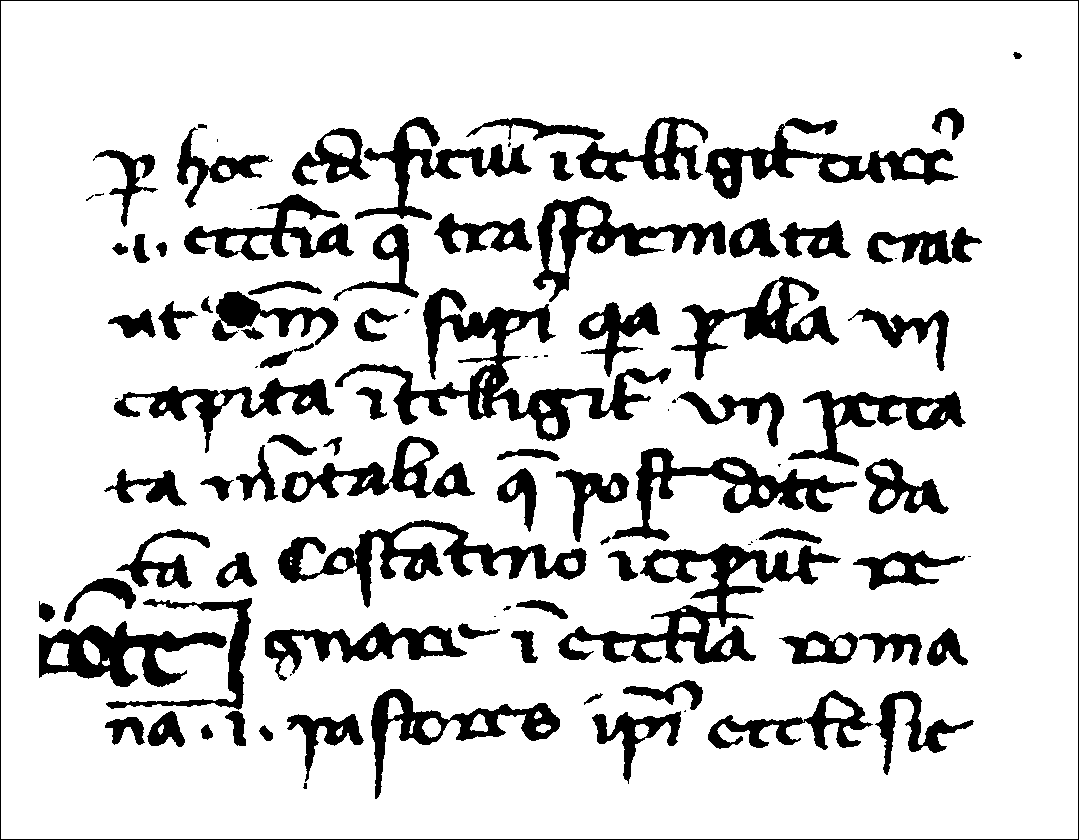 ꝑ hoc edificiū ītelligit᷑ currꝰ
.i. ecclīa q̄ trasformata erat
ut dcm̄ ē supͥ q̇a ꝑ illa vii
capita ītelligit᷑ vii pecca
ta mōrtalia q̄ post dotē da
tā a Costātino īceꝑūt re
gnare ī ecclīa roma
na .i. pastores ip̄i ecclesie